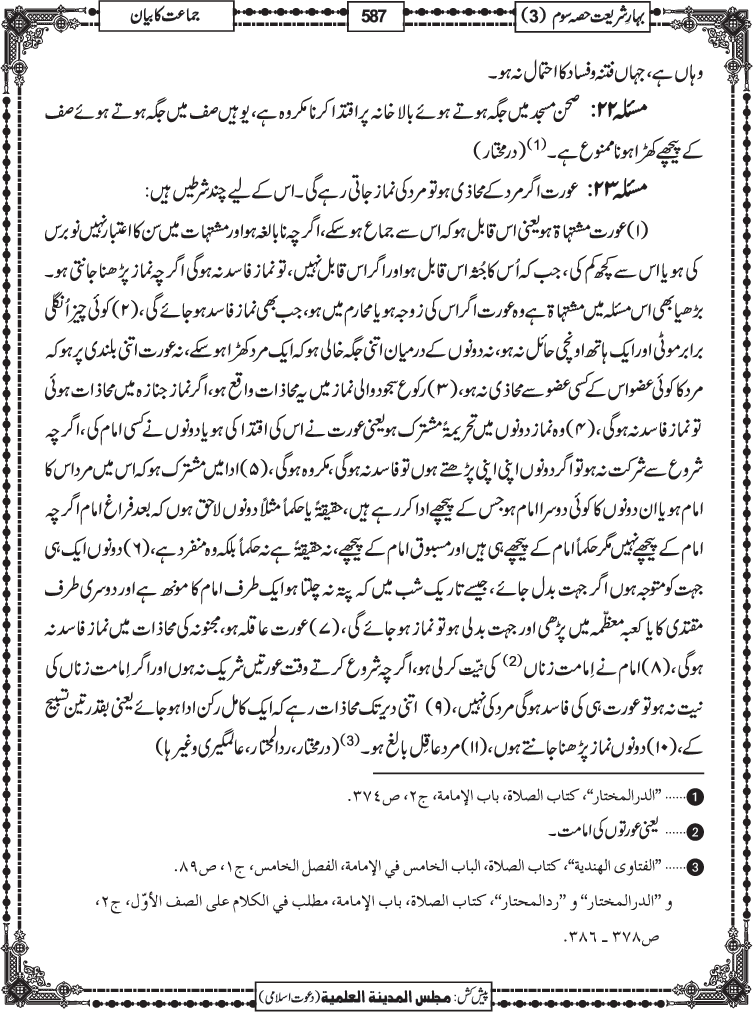 بہارِ شریعت حصہ سوم (3)
587
جماعت کا بیان
وہاں ہے، جہاں فتنہ و فساد کا احتمال نہ ہو۔
مسئلہ ۲۲: صحن مسجد میں جگہ ہوتے ہوئے بالا خانہ پر اقتدا کرنا مکروہ ہے، یوہیں صف میں جگہ ہوتے ہوئے صف
کے پیچھے کھڑا ہونا ممنوع ہے۔ (1) (درمختار)
مسئلہ ۲۳: عورت اگر مرد کے محاذی ہو تو مرد کی نماز جاتی رہے گی۔ اس کے لیے چند شرطیں ہیں:
(۱) عورت مشتہاۃ ہو یعنی اس قابل ہو کہ اس سے جماع ہو سکے، اگرچہ نابالغہ ہو اور مشتہات میں سن کا اعتبار نہیں نو برس
کی ہو یا اس سے کچھ کم کی، جب کہ اُس کا جُثہ اس قابل ہو اور اگر اس قابل نہیں، تو نماز فاسد نہ ہوگی اگرچہ نماز پڑھنا جانتی ہو۔
بڑھیا بھی اس مسئلہ میں مشتہاۃ ہے وہ عورت اگر اس کی زوجہ ہو یا محارم میں ہو، جب بھی نماز فاسد ہو جائے گی، (۲) کوئی چیز اُنگلی
برابر موٹی اور ایک ہاتھ اونچی حائل نہ ہو، نہ دونوں کے درمیان اتنی جگہ خالی ہو کہ ایک مرد کھڑا ہو سکے، نہ عورت اتنی بلندی پر ہو کہ
مرد کا کوئی عضو اس کے کسی عضو سے محاذی نہ ہو، (۳) رکوع سجود والی نماز میں یہ محاذات واقع ہو، اگر نماز جنازہ میں محاذات ہوئی
تو نماز فاسد نہ ہوگی، (۴) وہ نماز دونوں میں تحریمۃً مشترک ہو یعنی عورت نے اس کی اقتدا کی ہو یا دونوں نے کسی امام کی، اگرچہ
شروع سے شرکت نہ ہو تو اگر دونوں اپنی اپنی پڑھتے ہوں تو فاسد نہ ہوگی، مکروہ ہوگی، (۵) ادا میں مشترک ہو کہ اس میں مرد اس کا
امام ہو یا ان دونوں کا کوئی دوسرا امام ہو جس کے پیچھے ادا کر رہے ہیں، حقیقۃً یا حکماً مثلاً دونوں لاحق ہوں کہ بعد فراغ امام اگرچہ
امام کے پیچھے نہیں مگر حکماً امام کے پیچھے ہی ہیں اور مسبوق امام کے پیچھے، نہ حقیقۃً ہے نہ حکماً بلکہ وہ منفرد ہے، (۶) دونوں ایک ہی
جہت کو متوجہ ہوں اگر جہت بدل جائے، جیسے تاریک شب میں کہ پتہ نہ چلتا ہو ایک طرف امام کا مونھ ہے اور دوسری طرف
مقتدی کا یا کعبہ معظّمہ میں پڑھی اور جہت بدلی ہو تو نماز ہو جائے گی، (۷) عورت عاقلہ ہو، مجنونہ کی محاذات میں نماز فاسد نہ
ہوگی، (۸) امام نے اِمامت زناں (2) کی نیّت کر لی ہو، اگرچہ شروع کرتے وقت عورتیں شریک نہ ہوں اور اگر اِمامت زناں کی
نیت نہ ہو تو عورت ہی کی فاسد ہوگی مرد کی نہیں، (۹) اتنی دیر تک محاذات رہے کہ ایک کامل رکن ادا ہو جائے یعنی بقدر تین تسبیح
کے، (۱۰) دونوں نماز پڑھنا جانتے ہوں، (۱۱) مرد عاقِل بالغ ہو۔ (3) (درمختار، ردالمحتار، عالمگیری وغیرہا)
1 ...... "الدرالمختار"، كتاب الصلاة، باب الإمامة، ج٢، ص٣٧٤.
2 ...... یعنی عورتوں کی امامت۔
3 ...... "الفتاوى الهندية"، كتاب الصلاة، الباب الخامس في الإمامة، الفصل الخامس، ج١، ص٨٩.
و "الدرالمختار" و "ردالمحتار"، كتاب الصلاة، باب الإمامة، مطلب في الكلام على الصف الأوّل، ج٢،
ص٣٧٨ ـ ٣٨٦.
پیش کش: مجلس المدينة العلمية (دعوت اسلامی)